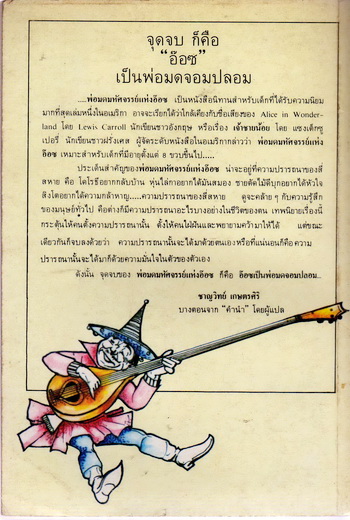 จุดจบ ก็คือ
“อ๊อซ”
เป็นพ่อมดจอมปลอม
.....พ่อมดมหัศจรรย์แห่งอ๊อซ เป็นหนังสือนิทานสำหรับเด็กที่ได้รับความนิยม
มากที่สุดเล่มหนึ่งในอเมริกา อาจจะเรียกได้ว่าใกล้เคียงกับชื่อเสียงของ Alice in Wonder-
land โดย Lewis Carroll นักเขียนชาวอังกฤษ หรือเรื่อง เจ้าชายน้อย โดย แซงเต็กซู
เปอรี นักเขียนชาวฝรั่งเศส ผู้จัดระดับหนังสือในอเมริกากล่าวว่า พ่อมดมหัศจรรย์แห่ง
อ๊อซ เหมาะสำหรับเด็กที่มีอายุตั้งแต่ 8 ขวบขึ้นไป.....
ประเด็นสำคัญของพ่อมดมหัศจรรย์แห่งอ๊อซ น่าจะอยู่ที่ความปรารถนาของสี่
สหาย คือ โดโรธีอยากกลับบ้าน หุ่นไล่กาอยากได้มันสมอง ชายตัดไม้ดีบุกอยากได้หัวใจ
สิงโตอยากได้ความกล้าหาญ.....ความปรารถนาของสี่สหาย ดูจะคล้าย ๆ กับความรู้สึก
ของมนุษย์ทั่วไป คือต่างก็มีความปรารถนาอะไรบางอย่างในชีวิตของตน เทพนิยายเรื่องนี้
กระตุ้นให้คนตั้งความปรารถนานั้น ตั้งให้คนใฝ่ฝันและพยายามคว้ามาให้ได้ แต่ขณะ
เดียวกันก็จบลงด้วยว่า ความปรารถนานั้นจะได้มาด้วยตนเองหรือที่แน่นอนก็คือ ความ
ปรารถนานั้นจะได้มาก็ด้วยความมั่นใจในตัวของตัวเอง
ดังนั้น จุดจบของ พ่อมดมหัศจรรย์แห่งอ๊อซ ก็คือ อ๊อซเป็นพ่อมดจอมปลอม...
ชาญวิทย์ เกษตรศิริ
บางตอนจาก “คำนำ” โดยผู้แปล